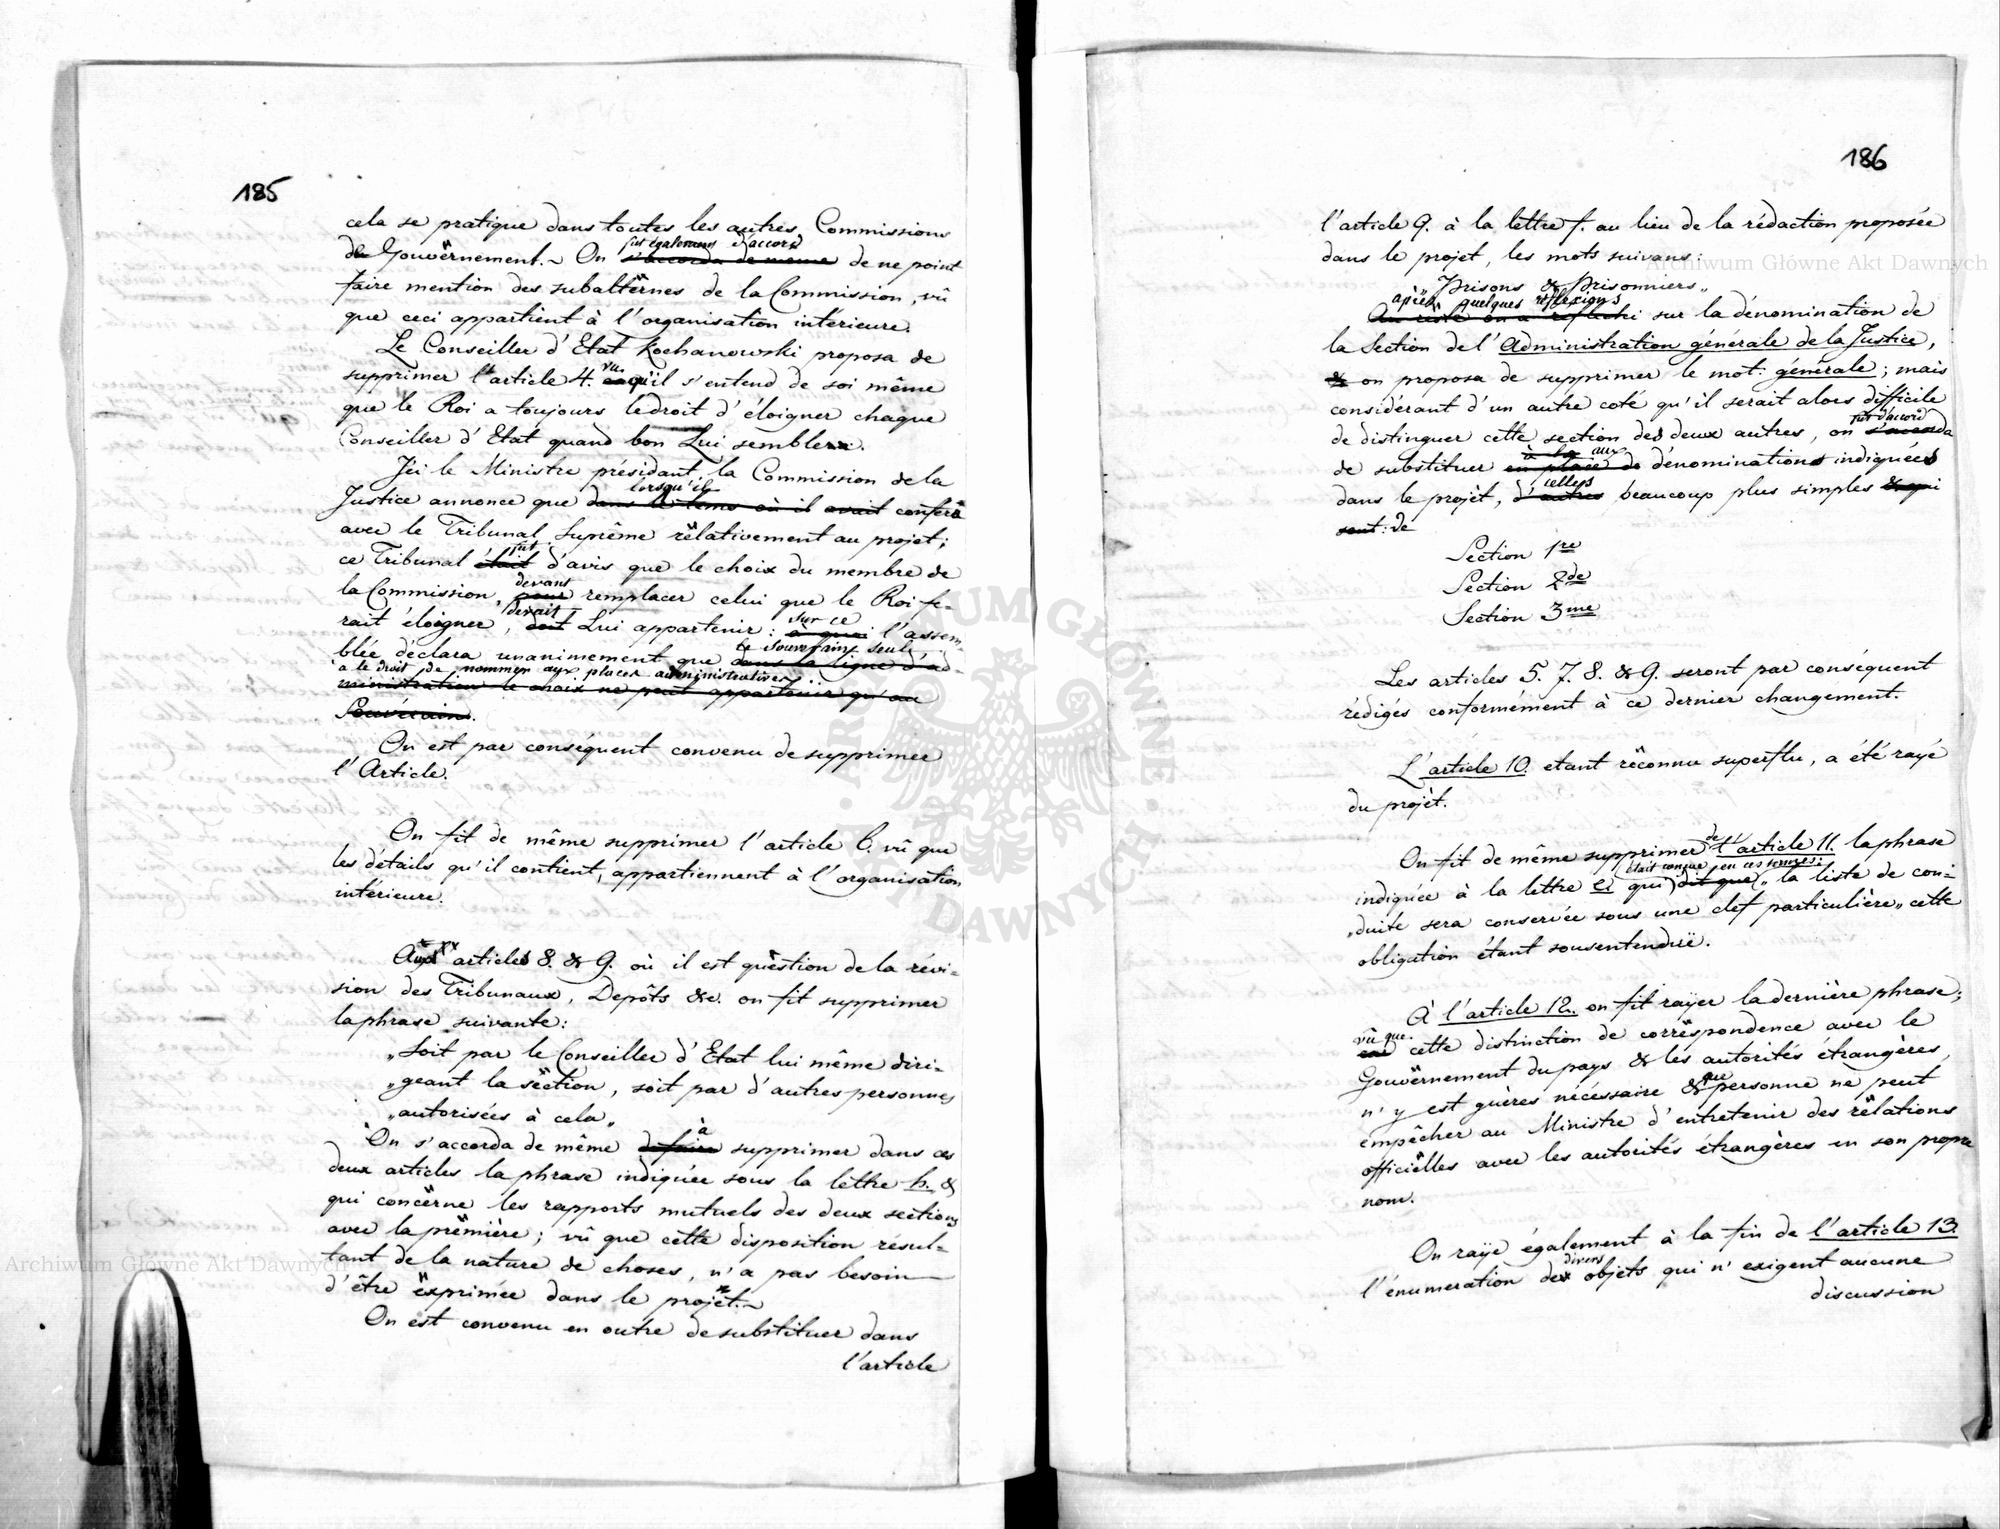 185
cela se pratique dans toutes les autres Commissions
fut également d'accord
de Gouvernement. On s'accorda de même de ne point
faire mention des subalternes de la Commission, vû
que ceci appartient à l'organisation intérieure.
Le Conseiller d'Etat Kochanowski proposa de
vu
supprimer l'article 4. qu'il s'entend de soi même
que le Roi a toujours le droit d'éloigner chaque
Conseiller d'Etat quand bon Lui semblera.
Ici le Ministre présidant la Commission de la
lorsqu'il
Justice annonce que dans le tems où il avait conféré
avec le Tribunal Suprême rélativement au projet;
fut
ce Tribunal était d'avis que le choix du membre de
devant
la Commission, pour remplacer celui que le Roi fe-
devait sur ce
rait éloigner, doit Lui appartenir: à quoi l'assem-
le Souverain seul
blée déclara unanimement que dans la ligne d'ad-
a le droit de nommer aux places administratives
ministration le choix ne peut appartenir qu'au
Souverain.
On est par conséquent convenu de supprimer
l'Article.
On fit de même supprimer l'article 6. vû que
les détails qu'il contient, appartiennent à l'organisation
intérieure.
Aux articles 8. & 9. où il est question de la révi-
sion des Tribunaux, Depôts &c. on fit supprimer
la phrase suivante:
„Soit par le Conseiller d'Etat lui même diri-
„geant la section, soit par d'autres personnes
„autorisées à cela„
à
On s'accorda de même de faire supprimer dans ces
deux articles la phrase indiquée sous la lettre h. &
qui concerne les rapports mutuels des deux sections
avec la première; vû que cette disposition résul-
tant de la nature de choses, n'a pas besoin
d'être exprimée dans le projet.
On est convenu en outre de substituer dans
l'article
186
l'article 9. à la lettre f. au lieu de la rédaction proposée
dans le projet, les mots suivans:
„Prisons & Prisonniers„
après quelques réflexions
Au reste on a réfléchi sur la dénomination de
la Section de l'Administration générale de la Justice,
& on proposa de supprimer le mot: générale; mais
considérant d'un autre coté qu'il serait alors difficile
fut d'accord
de distinguer cette section des deux autres, on s'accorda
aux
de substituer en place de dénominations indiquées
celles
dans le projet, d'autres beaucoup plus simples & qui
sont: de
Section 1re
Section 2de
Section 3me
Les articles 5. 7. 8. & 9. seront par conséquent
rédigés conformément à ce dernier changement.
L'article 10. etant réconnu superflu, a été rayé
du projèt.
de
On fit de même supprimer l'article 11. la phrase
était conçue en ces termes:
indiquée à la lettre e. qui dit que „la liste de con-
„duite sera conservée sous une clef particulière„ cette
obligation étant sousentendue.
À l'article 12. on fit rayer la dernière phrase;
vû que
car cette distinction de correspondence avec le
Gouvernement du pays & les autorités étrangères,
que
n'y est guères nécessaire & personne ne peut
empêcher au Ministre d'entretenir des rélations
officielles avec les autorités étrangères en son propre
nom.
On raye également à la fin de l'article 13.
divers
l'énumeration des objets qui n'exigent aucune
discussion
Archiwum Główne Akt Dawnych
Archiwum Główne Akt Dawnych
ARCHIWUM GŁÓWNE AKT DAWNYCH